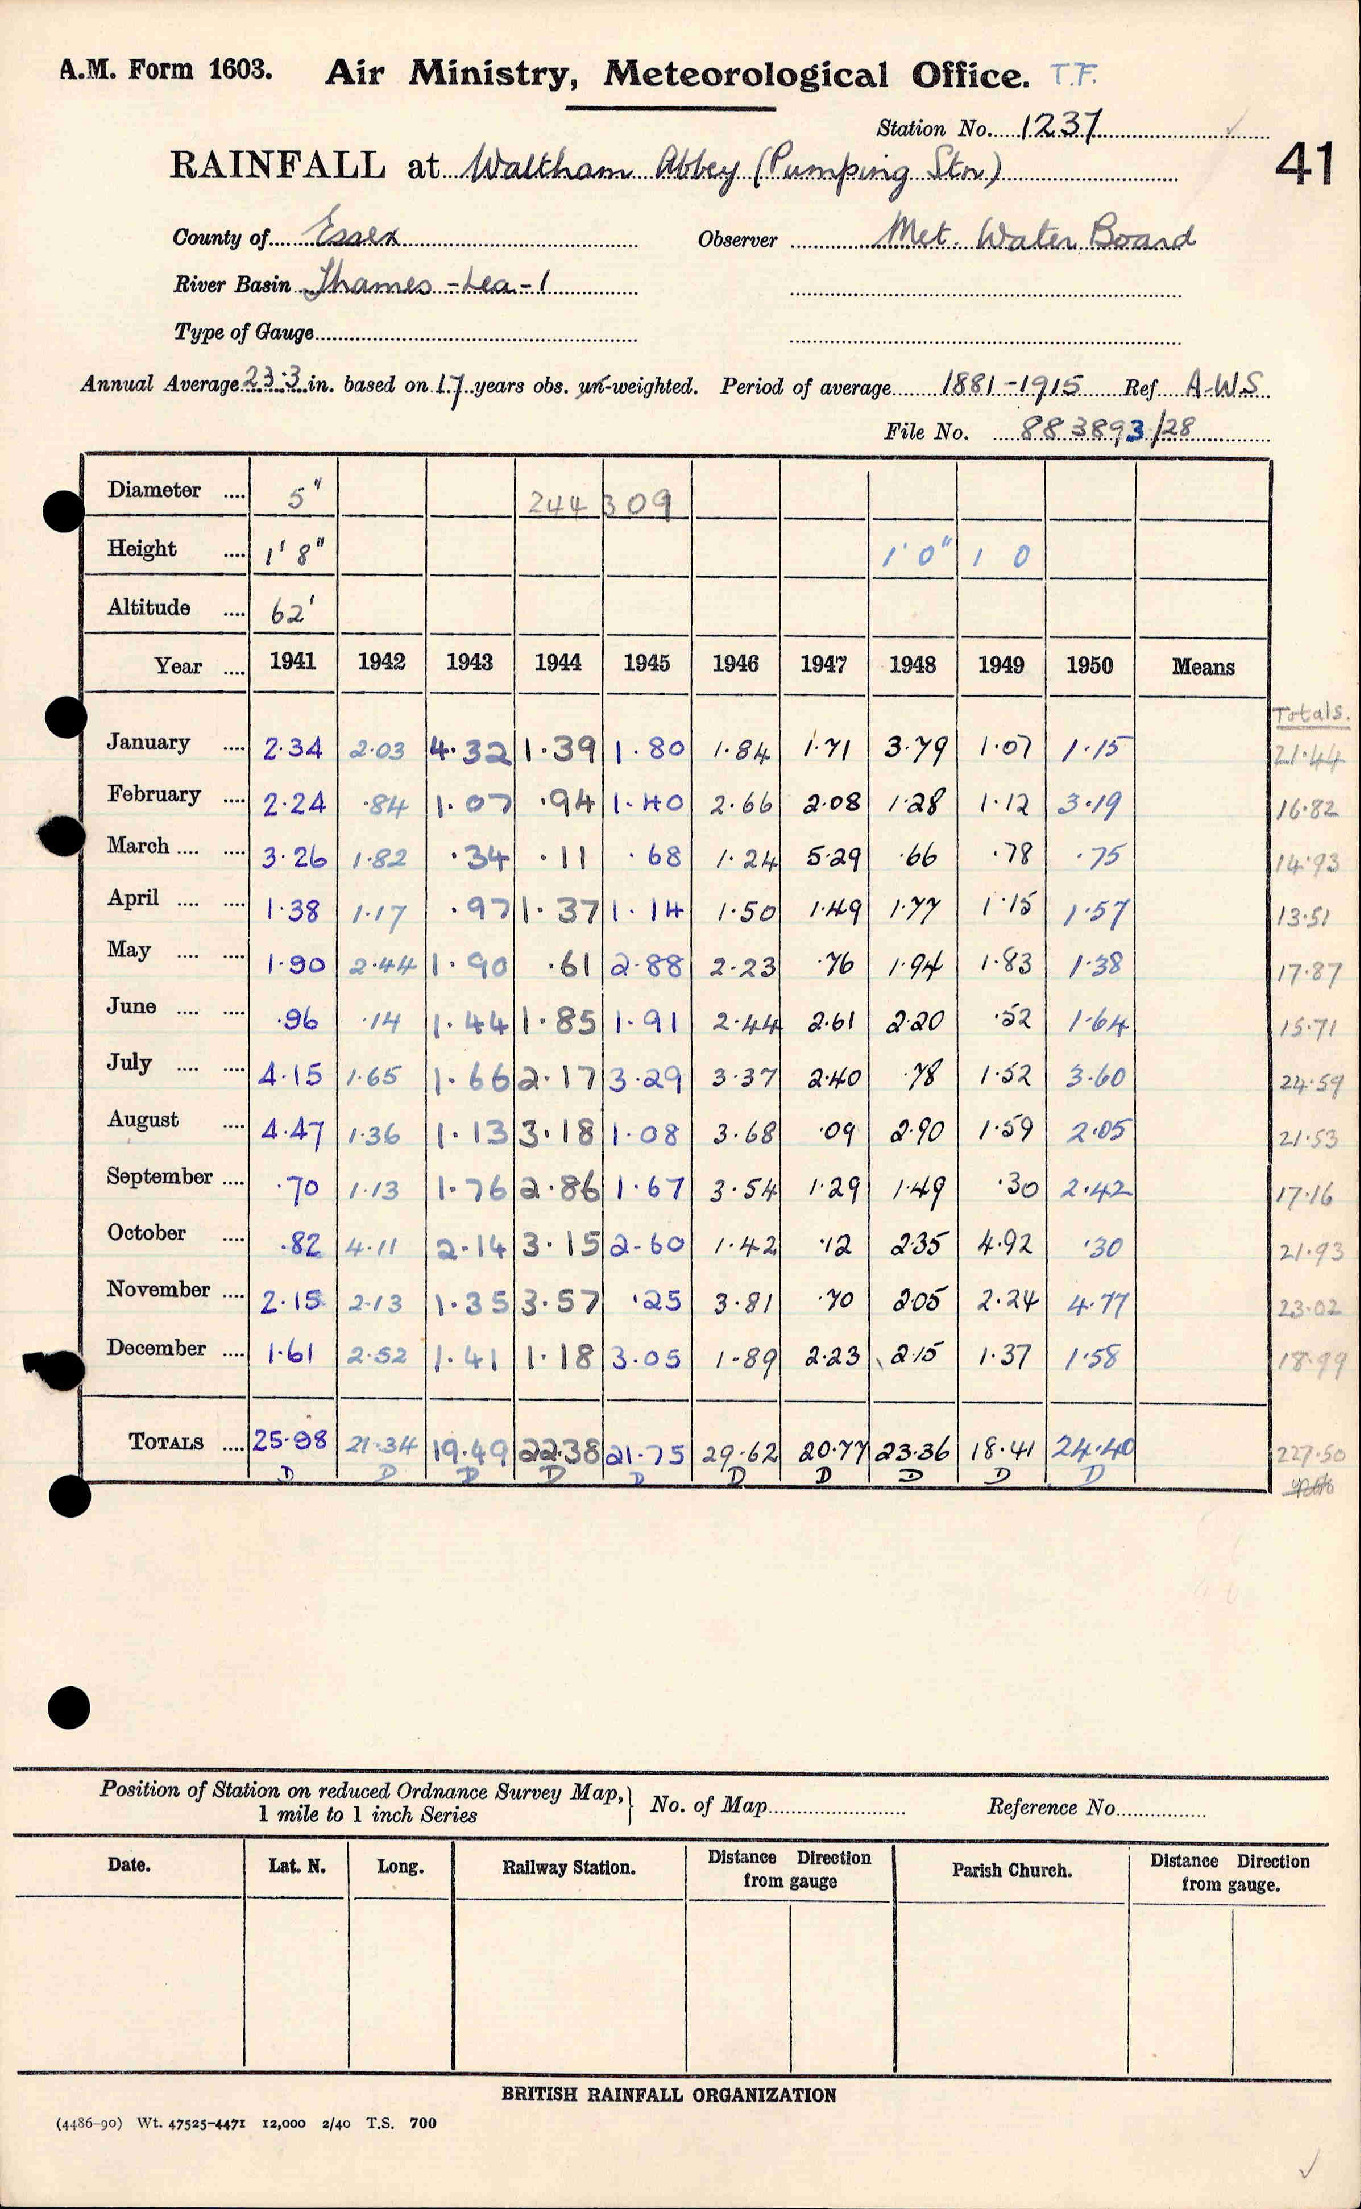 A.M. Form 1603. Air Ministry, Meteorological Office. T.F.
Station No. 1237
41
RAINFALL at Waltham Abbey (Pumping Stn)
County of Essex Observer Met. Water Board
River Basin Thames - Lea - 1
Type of Gauge
Annual Average 23.3 in. based on 17 years obs. un-weighted. Period of average 1881-1915 Ref A.W.S
File No. 883893/28
Diameter .... 5" 244 309
Height .... 1' 8" 1' 0" 1 0
Altitude .... 62'
Year .... 1941 1942 1943 1944 1945 1946 1947 1948 1949 1950 Means
Totals.
January .... 2.34 2.03 4.32 1.39 1.80 1.84 1.71 3.79 1.07 1.15 21.44
February .... 2.24 .84 1.07 .94 1.40 2.66 2.08 1.28 1.12 3.19 16.82
March .... .... 3.26 1.82 .34 .11 .68 1.24 5.29 .66 .78 .75 14.93
April .... .... 1.38 1.17 .97 1.37 1.14 1.50 1.49 1.77 1.15 1.57 13.51
May .... .... 1.90 2.44 1.90 .61 2.88 2.23 .76 1.94 1.83 1.38 17.87
June .... .... .96 .14 1.44 1.85 1.91 2.44 2.61 2.20 .52 1.64 15.71
July .... .... 4.15 1.65 1.66 2.17 3.29 3.37 2.40 .78 1.52 3.60 24.59
August .... 4.47 1.36 1.13 3.18 1.08 3.68 .09 2.90 1.59 2.05 21.53
September .... .70 1.13 1.76 2.86 1.67 3.54 1.29 1.49 .30 2.42 17.16
October .... .82 4.11 2.14 3.15 2.60 1.42 .12 2.35 4.92 .30 21.93
November .... 2.15 2.13 1.35 3.57 .25 3.81 .70 2.05 2.24 4.77 23.02
December .... 1.61 2.52 1.41 1.18 3.05 1.89 2.23 2.15 1.37 1.58 18.99
TOTALS .... 25.98 21.34 19.49 22.38 21.75 29.62 20.77 23.36 18.41 24.40 227.50
D D D D D D D D D D
Position of Station on reduced Ordnance Survey Map,
1 mile to 1 inch Series
No. of Map Reference No.
Date. Lat. N. Long. Railway Station. Distance Direction from gauge Parish Church. Distance Direction from gauge.
BRITISH RAINFALL ORGANIZATION
(4486-90) Wt. 47525-4471 12,000 2/40 T.S. 700